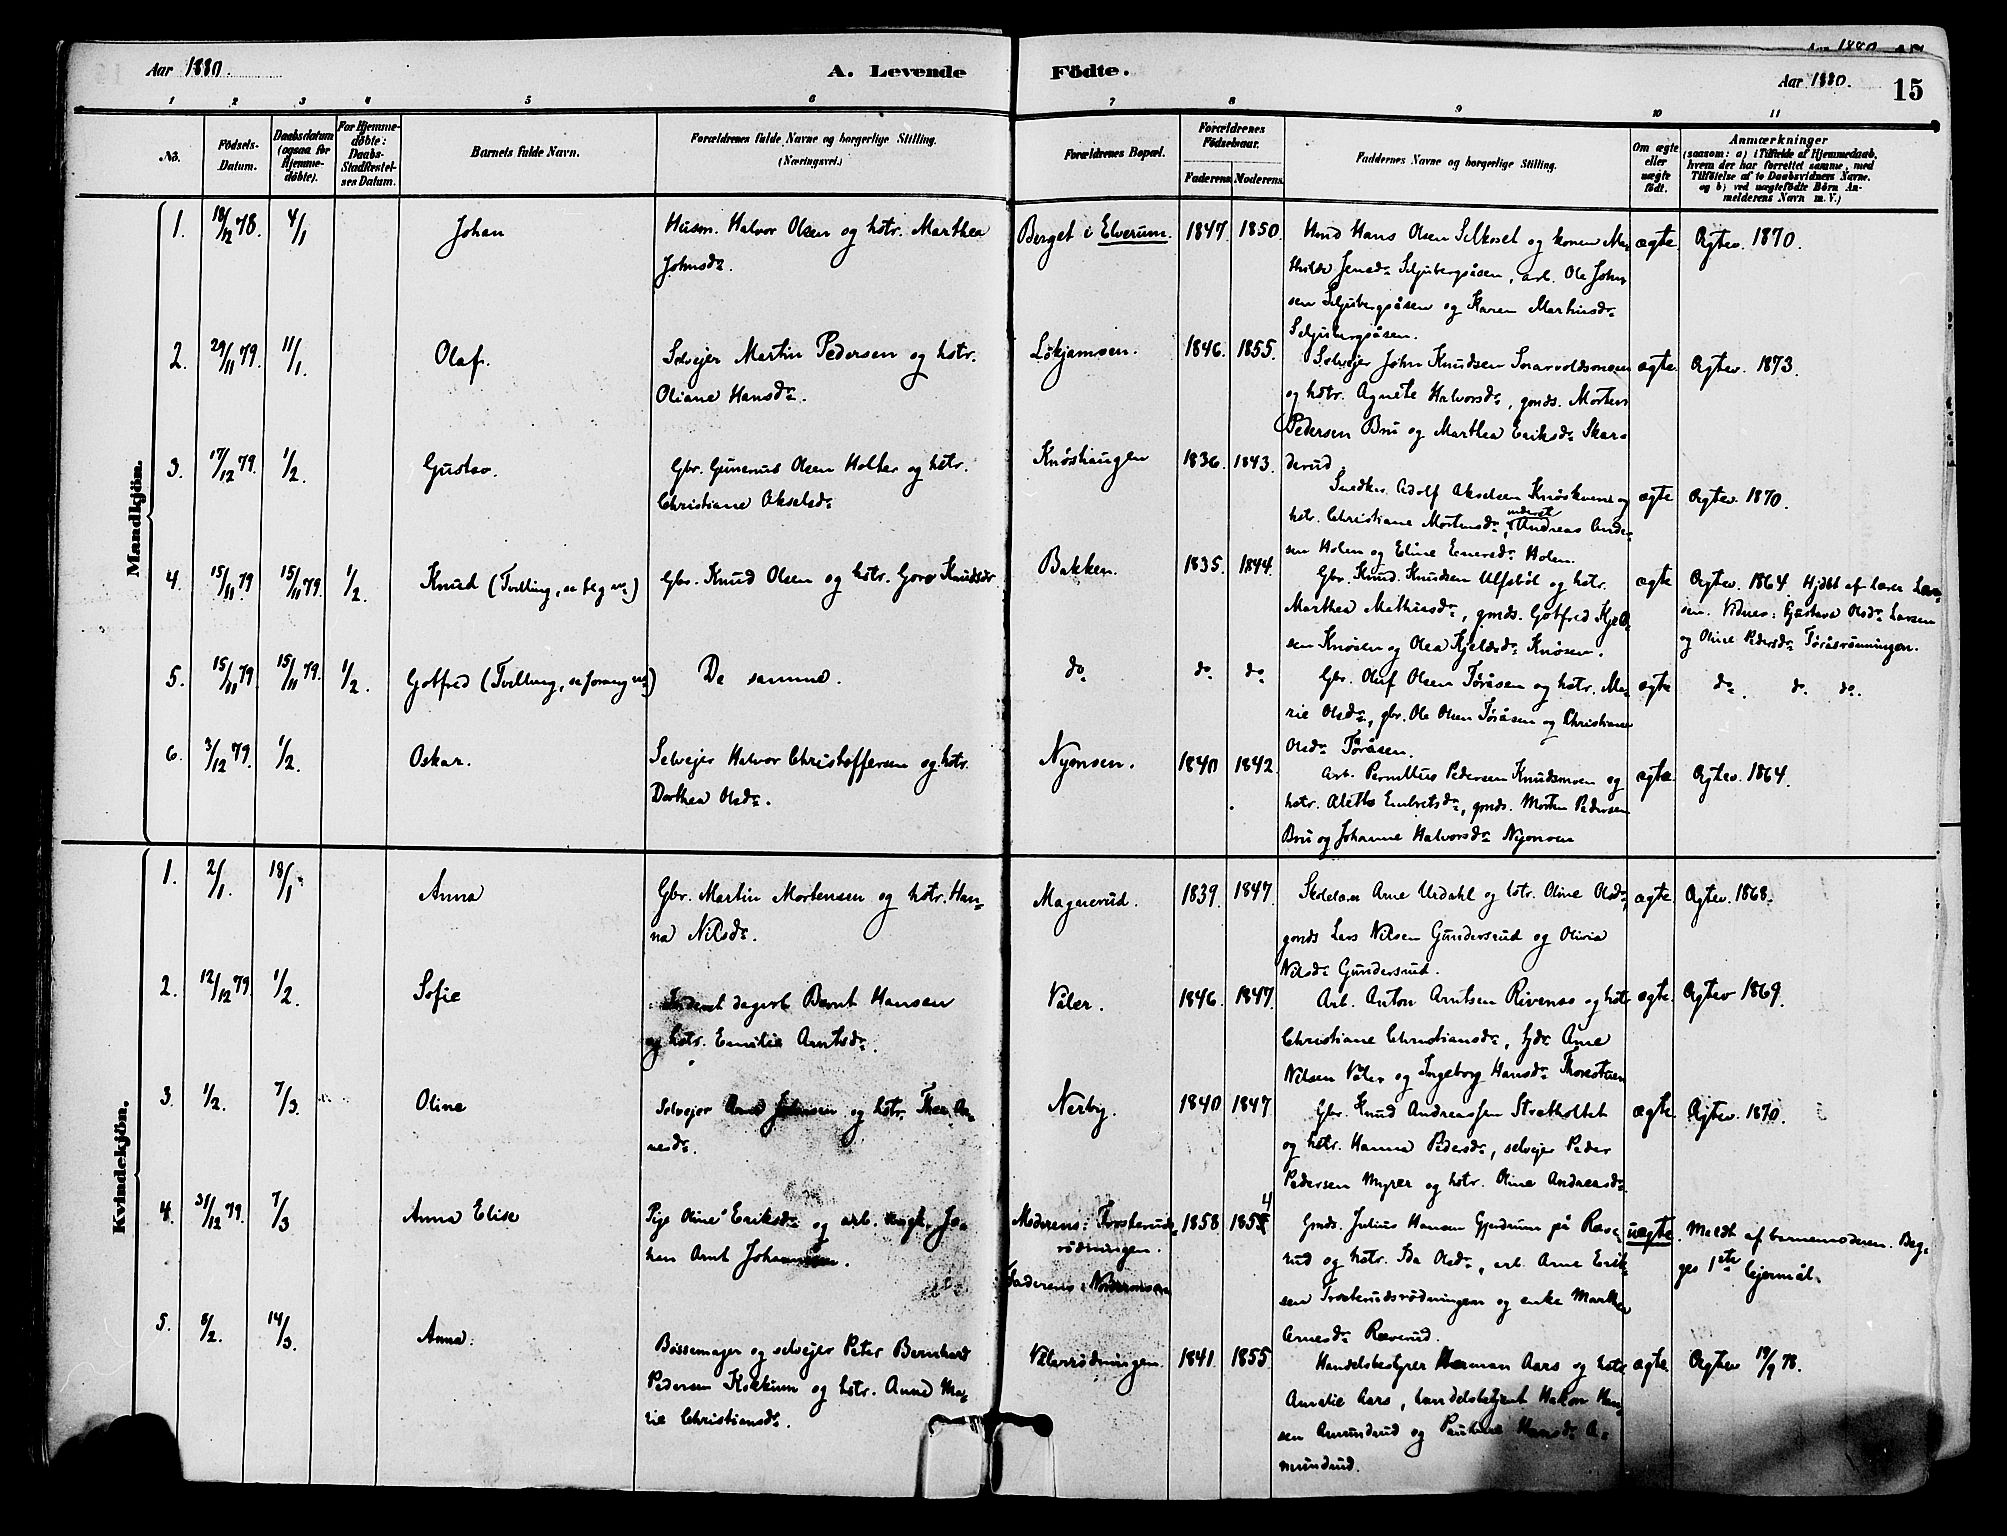 Aar 1880.
A. Levende
Födte.
Aar 1880.
15
1 2 3 4 5 6 7 8 9 10 11
No.
Födsels-
Datum.
Daabsdatum
(ogsaa for
Hjemme-
döbte).
For Hjemme-
döbte:
Daabs-
Stadfæstel-
ses Datum.
Barnets fulde Navn.
Forældrenes fulde Navne og borgerlige Stilling.
(Næringsvei.)
Forældrenes Bopæl.
Forældrenes
Födselsaar.
Faderens. Moderens.
Faddernes Navne og borgerlige Stilling.
Om ægte
eller
uægte
födt.
Anmærkninger
(saasom: a) i Tilfælde af Hjemmedaab,
hvem der har forrettet samme, med
Tilföielse af to Daabsvidners Navne.
og b) ved uægtefödte Börn An-
melderens Navn m. V.)
Mandkjön.
1. 18/12 78. 4/1 Johan
Husm. Halvor Olsen og hstr. Marthea
Johnsdr.
Berget i Elverum. 1847. 1850.
Hmd Hans Olsen Silkoset og konen Ma-
thilde Jensdr Seljubergsåsen, arb. Ole John
sen Seljubergsåsen og Karen Martinsdr
Seljubergsåsen.
ægte. Ægtev. 1870.
2. 29/11 79. 11/1. Olaf.
Selvejer Martin Pedersen og hstr.
Oliane Hansdr.
Lökjamoen. 1846. 1855.
Selvejer John Knudsen
og hstr. Agnete Halvorsdr, gmds. Morten
Pedersen Bru og Marthea Eriksdr Skar-
derud.
ægte. Ægtev. 1873.
3. 17/12 79. 1/2. Gustav.
Gbr. Gunerius Olsen Holter og hstr.
Christiane Akselsdr
Knöshaugen 1836. 1843.
Snedker Adolf Akselsen og
hstr. Christiane Mortensdr, Andreas Ander-
sen Holen og Eline Enersdr Holen.
ægte Ægtev. 1870.
4. 15/11 79 15/11 79. 1/2. Knud (Tvilling, se flg nr.)
Gbr. Knud Olsen og hstr. Goro Knudsdr
Bakken. 1835. 1844.
Gbr. Knud Knudsen Ulfsböl og hstr.
Marthea Mathisdr, gmds. Gotfred Kjeld-
sen Knösen og Olea Kjeldsdr Knösen.
ægte Ægtev. 1864. Hjdbt af lærer Lar-
sen. Vidner: Gustava Olsdr Larsen
og Oline Pedersdr Töråsrönningen.
5. 15/11 79. 15/11 79. 1/2. Gotfred (Tvilling, se forang nr.)
De samme.
do do do
Gbr. Oluf Olsen Töråsen og hstr. Ma-
rie Olsdr, gbr. Ole Olsen Töråsen og Christiane
Olsdr Töråsen.
ægte do. do. do.
6. 3/12 79. 1/2. Oskar.
Selvejer Halvor Christoffersen og hstr.
Dorthea Olsdr.
Nyonsen. 1840 1842.
Arb. Pernillus Pedersen Knudsmoen og
hstr. Alette Embretsdr, gmds. Morten Pedersen
Bru og Johanne Halvorsdr
ægte. Ægtev. 1864.
Kvindekjön.
1. 2/1. 18/1. Anna
Gbr. Martin Mortensen og hstr. Han-
na Nilsdr.
Magnerud. 1839. 1847.
Skolelær Arne Urdahl og hstr. Oline Olsdr,
gmds Lars Nilsen Gundersrud og Olivia
Nilsdr Gundersrud.
ægte. Ægtev. 1868.
2. 12/12 79. 1/2. Sofie
Inderst dagarb Bernt Hansen
og hstr. Emilie Arntsdr.
Våler. 1846. 1847.
Arb. Anton Arntsen og hstr
Christiane Christiansdr, Arne
Nilsen Våler og Ingeborg Hansdr
ægte. Ægtev 1869.
3. 1/2. 7/3. Oline
Selvejer Arne og hstr. Thea Ar-
nesdr.
Nerby. 1840 1847
Gbr. Knud Andreassen Stratholtet
og hstr. Hanna Pedersdr, selvejer Peder
Pedersen Myrer og hstr. Oline Andreasdr
ægte Ægtev. 1870.
4. 31/12 79. 7/3 Anna Elise
Pige Oline Eriksdr og arb. ungk. Jo-
han Arnt Johannesen.
Moderens: Trosteruds-
rödningen.
Faderens: Nordermoen
1858 1854
Gmds. Julius Hansen Gjendrum på Ræve-
rud og hstr. Ida Olsdr, arb. Arne Erik-
sen Trosterudsrödningen og enke Marthea
Arnesdr Ræverud.
uægte. Meldt af barnemoderen. Beg-
ges 1ste lejermål.
5. 6/2. 14/3. Anna.
Bössemager og selvejer Peter Bernhard
Pedersen Kokkum og hstr. Anne Ma-
rie Christiansdr.
Vålerrödningen. 1841. 1855
Handelsbestyrer Herman Aars og hstr
Amalie Aars, handelsbetjent Hakon Han-
sen Amundrud og Pauline Hansdr A-
mundrud.
ægte Ægtev 19/9 78.